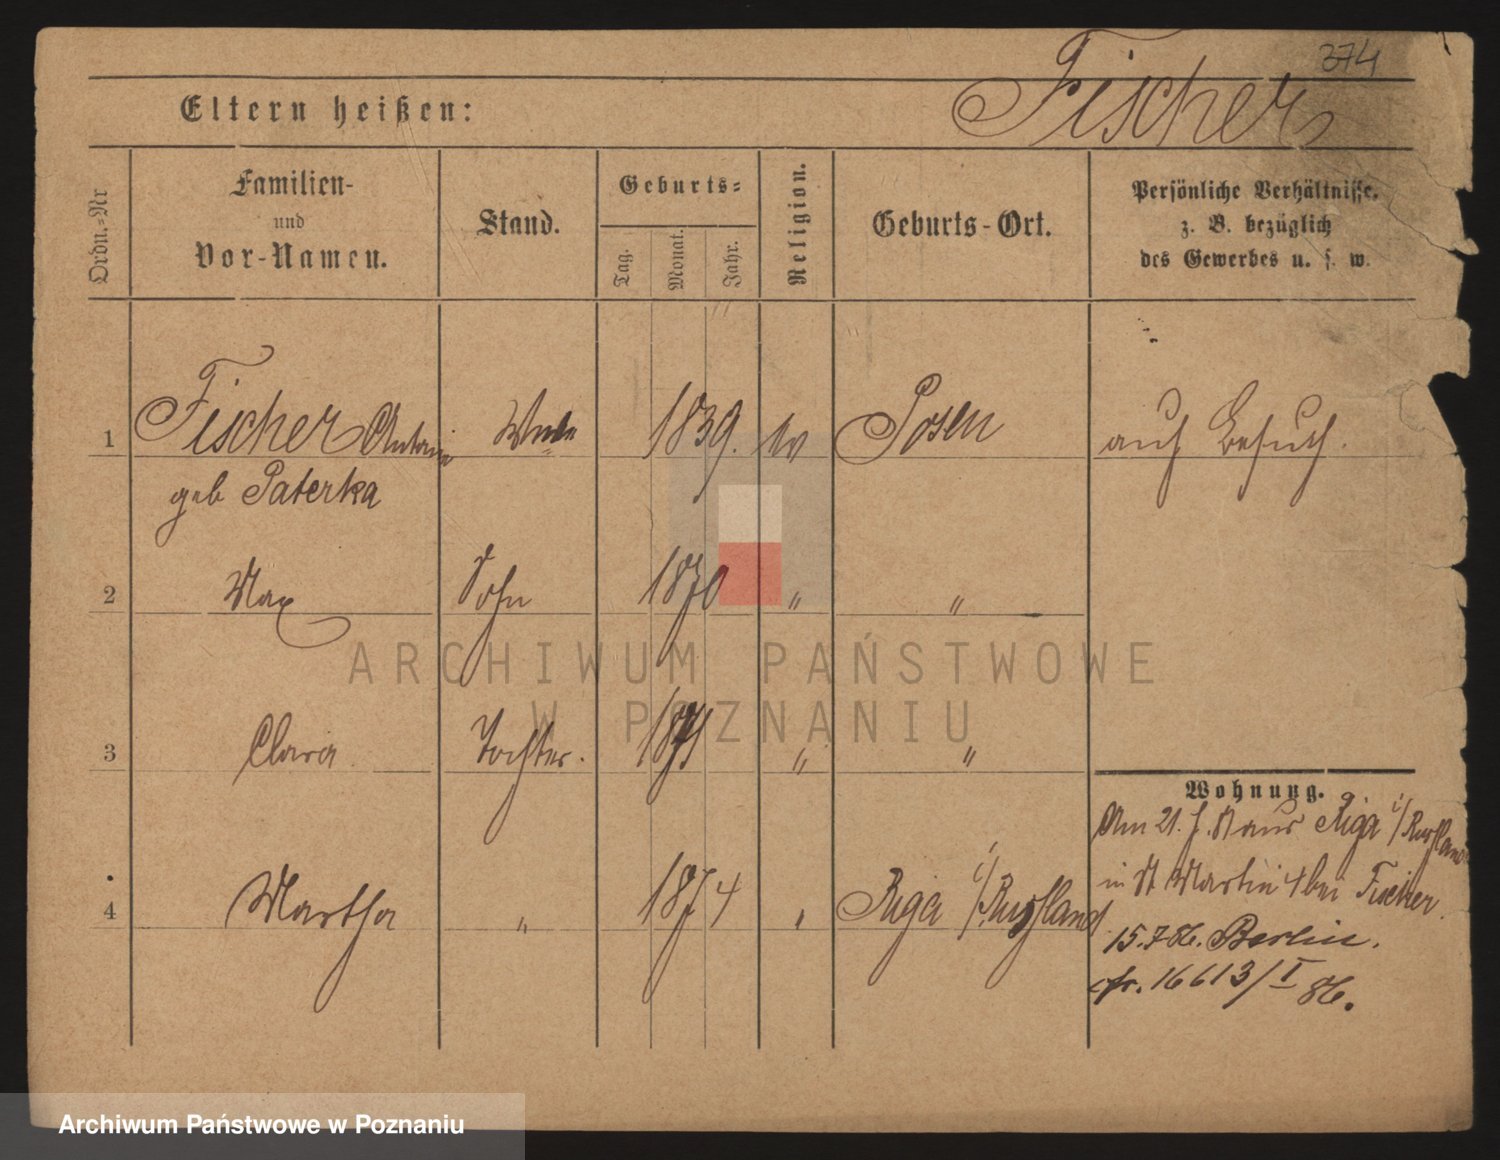 374
Eltern heißen:
Fischer
Ordn.-Nr
Familien-
und
Vor-Namen.
Stand.
Geburts-
Tag.
Monat.
Jahr.
Religion.
Geburts-Ort.
Persönliche Verhältnisse.
z. B. bezüglich
des Gewerbes u. s. w.
1 Fischer Antonie 1839. Posen auf Besuch.
geb Paterka
2 Max Sohn 1870 " "
3 Clara Tochter. 1871 " "
Wohnung.
Am 21. aus Riga i/Russland
in St Martin 4 bei Fischer.
4 Martha " 1874 " Riga i/Russland
15.7.86. Berlin.
cfr. 16613/I 86.
ARCHIWUM PAŃSTWOWE
W POZNANIU
Archiwum Państwowe w Poznaniu